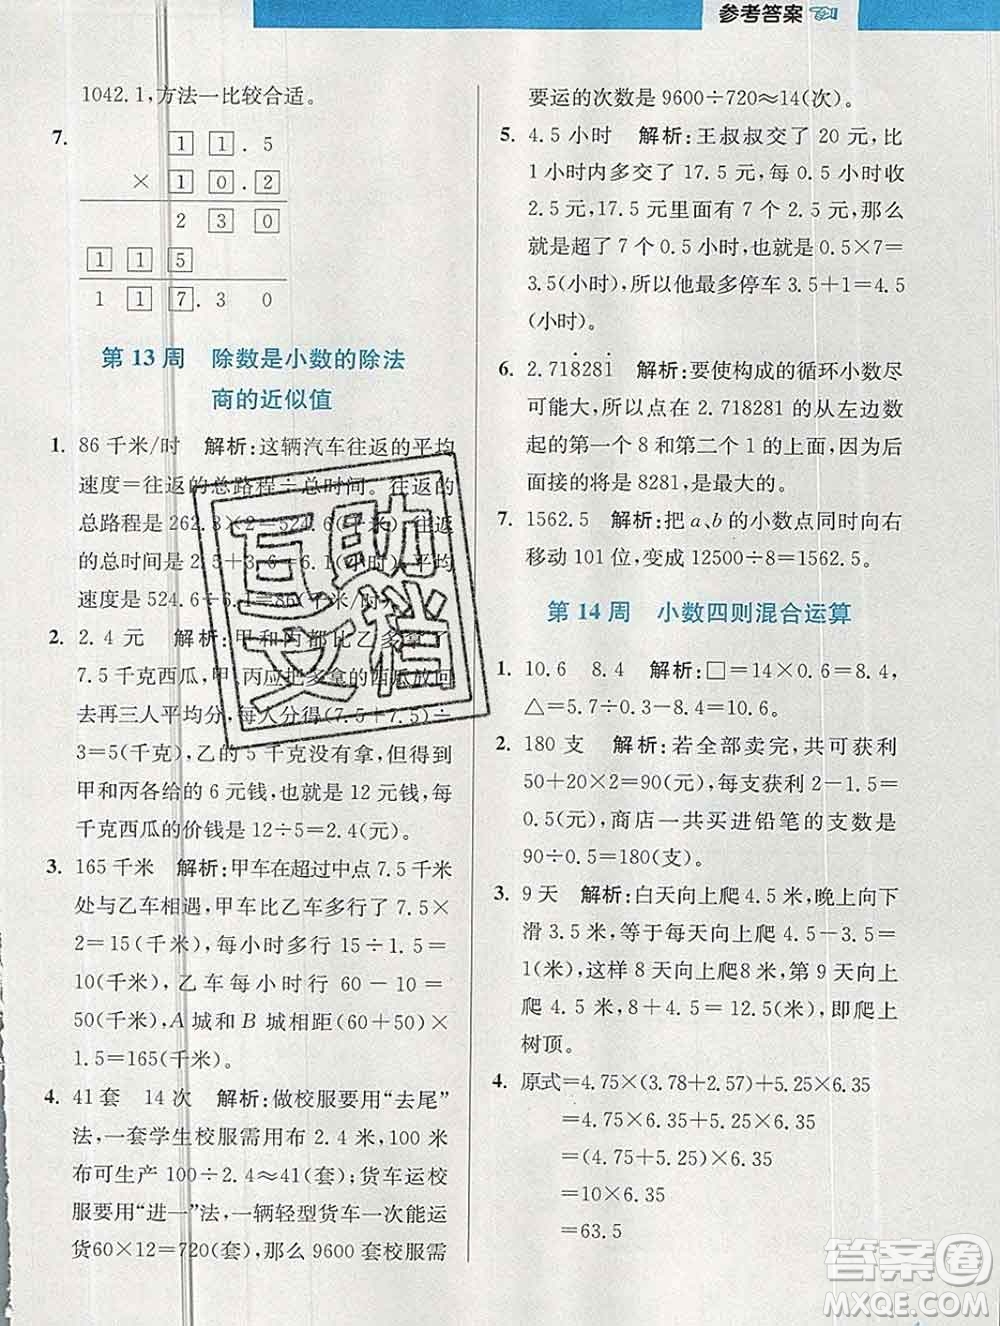 参考答案
1042.1,方法一比较合适。
7.
1 1.5
× 1 0.2
2 3 0
1 1 5
1 1 7.3 0
第 13 周 除数是小数的除法
商的近似值
1. 86 千米/时 解析:这辆汽车往返的平均
速度=往返的总路程÷总时间。往返的
总路程是 262.3×2=524.6(千米),往返
的总时间是 2.5+3.6=6.1(小时),平均
速度是 524.6÷6.1=86(千米/时)。
2. 2.4 元 解析:甲和丙都比乙多拿了
7.5 千克西瓜,甲、丙应把多拿的西瓜放回
去再三人平均分,每人分得(7.5+7.5)÷
3=5(千克),乙的 5 千克没有拿,但乙给
甲和丙各给的 6 元钱,一共是12元钱,每
千克西瓜的价钱是 12÷5=2.4(元)。
3. 165 千米 解析:甲车在超过中点 7.5 千米
处与乙车相遇,甲车比乙车多行了 7.5×
2=15(千米),每小时多行 15÷1.5=
10(千米),乙车每小时行 60-10=
50(千米),A 城和 B 城相距(60+50)×
1.5=165(千米)。
4. 41 套 14 次 解析:做校服要用“去尾”
法,一套学生校服需用布 2.4 米,100 米
布可生产 100÷2.4≈41(套);货车运校
服要用“进一”法,一辆轻型货车一次能运
货60×12=720(套),那么 9600 套校服需
要运的次数是 9600÷720≈14(次)。
5. 4.5 小时 解析:王叔叔交了 20 元,比
1 小时内多交了 17.5 元,每 0.5 小时收
2.5 元,17.5 元里面有 7 个 2.5 元,那么
就是超了 7 个 0.5 小时,也就是 0.5×7=
3.5(小时),所以他最多停车 3.5+1=4.5
(小时)。
6. 2.718̇281̇ 解析:要使构成的循环小数尽
可能大,所以点在 2.718281 的从左边数
起的第一个 8 和第二个 1 的上面,因为后
面接的将是 8281,是最大的。
7. 1562.5 解析:把 a、b 的小数点同时向右
移动 101 位,变成 12500÷8=1562.5。
第 14 周 小数四则混合运算
1. 10.6 8.4 解析:□=14×0.6=8.4,
△=5.7÷0.3-8.4=10.6。
2. 180 支 解析:若全部卖完,共可获利
50+20×2=90(元),每支获利 2-1.5=
0.5(元),商店一共买进铅笔的支数是
90÷0.5=180(支)。
3. 9 天 解析:白天向上爬 4.5 米,晚上下
滑 3.5 米,等于每天向上爬 4.5-3.5=
1(米),这样 8 天向上爬8米,第 9 天向上
爬 4.5 米,8+4.5=12.5(米),即爬上
树顶。
4. 原式=4.75×(3.78+2.57)+5.25×6.35
=4.75×6.35+5.25×6.35
=(4.75+5.25)×6.35
=10×6.35
=63.5
互助
文档
答案圈
MXQE.COM